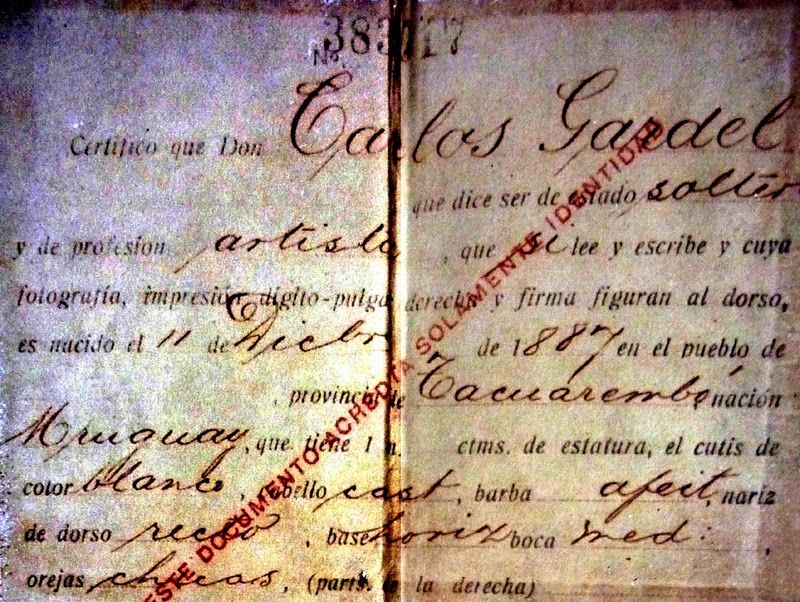 Nº 383717
Certifico que Don Carlos Gardel
que dice ser de estado solter
y de profesion artista, que si lee y escribe y cuya
fotografía, impresión digito-pulgar derecha y firma figuran al dorso,
es nacido el 11 de Dicbre de 1887 en el pueblo de
, provincia de Tacuarembó nación
Uruguay, que tiene 1 m. ctms. de estatura, el cutis de
color blanco, cabello cast, barba afeit, nariz
de dorso recto, base horiz boca med:,
orejas chicas, (parts. de la derecha)
ESTE DOCUMENTO ACREDITA SOLAMENTE IDENTIDAD